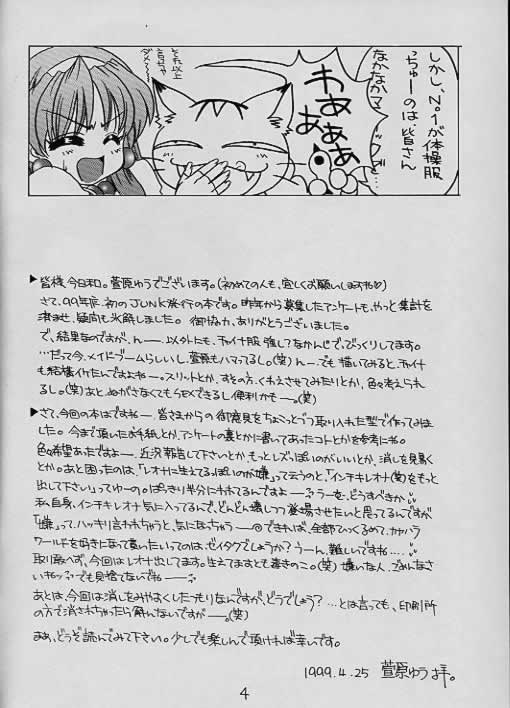 しかし、No.1が体操服
っちゅーのは、皆さん
なかなかマニアックだ…
わあぁぁ
あ
それ以上
言っちゃ
ダメ〜
▶皆様、今日和。萱原ゆうでございます。(初めての人も、宜しくお願いしますね♡)
さて、99年度、初のJUNK発行の本です。昨年から募集したアンケートも、やっと集計を
済ませ、疑問も氷解しました。御協力、ありがとうございました。
で、結果なのですが、んー…以外にも、チャイナ服強し?なかんじで、びっくりしてます。
…だって今、メイドブームらしいし、萱原もハマってるし。(笑)んー…でも描いてみると、チャイナ
も結構イケたんですよねー。スリットとか、すその方、くわえさせてみたりとか、色々考えられ
るし。(笑)あと、ぬがさなくてもSEXできるし便利かもー。(笑)
▶さて、今回の本はですねー、皆さまからの御意見をちょこっとづつ取り入れた型で作ってみま
した。今まで頂いたお手紙とか、アンケートの裏とかに書いてあったコトとかを参考にね。
色々希望あったですよー、近況報告して下さいとか、もっとレズっぽいのがいいとか、消しを見易く
とか。あと困ったのは、「レオナに生えてるっぽいのが嫌」って云うのと、「インチキレオナ(笑)をもっと
出して下さい」ってゆーの。ぱっきり半分にわれてるんですよー…うーむ、どうすべきか
私自身、インチキレオナ気に入ってるんで、どんどん嬉しつつ登場させたいと思ってるんですが
「嫌」って、ハッキリ言われちゃうと、気になっちゃうー できれば、全部ひっくるめて、カヤハラ
ワールドを好きになって貰いたいってのは、ゼイタクでしょうか?うーん、難しいですね….
取り敢へず、今回はレオナ出してます。生えてますとも毒きのこ。(笑)嫌いな人、ごみんなさ
いねッ でも見捨てないでねー
あとは、今回は消しをみやすくしたつもりなんですが、どうでしょう?…とは言っても、印刷所
の方で消されちゃったら解んないですがー。(笑)
まぁ、どうぞ読んでみて下さい。少しでも楽しんで頂ければ幸いです。
1999.4.25 萱原ゆう拝。
4